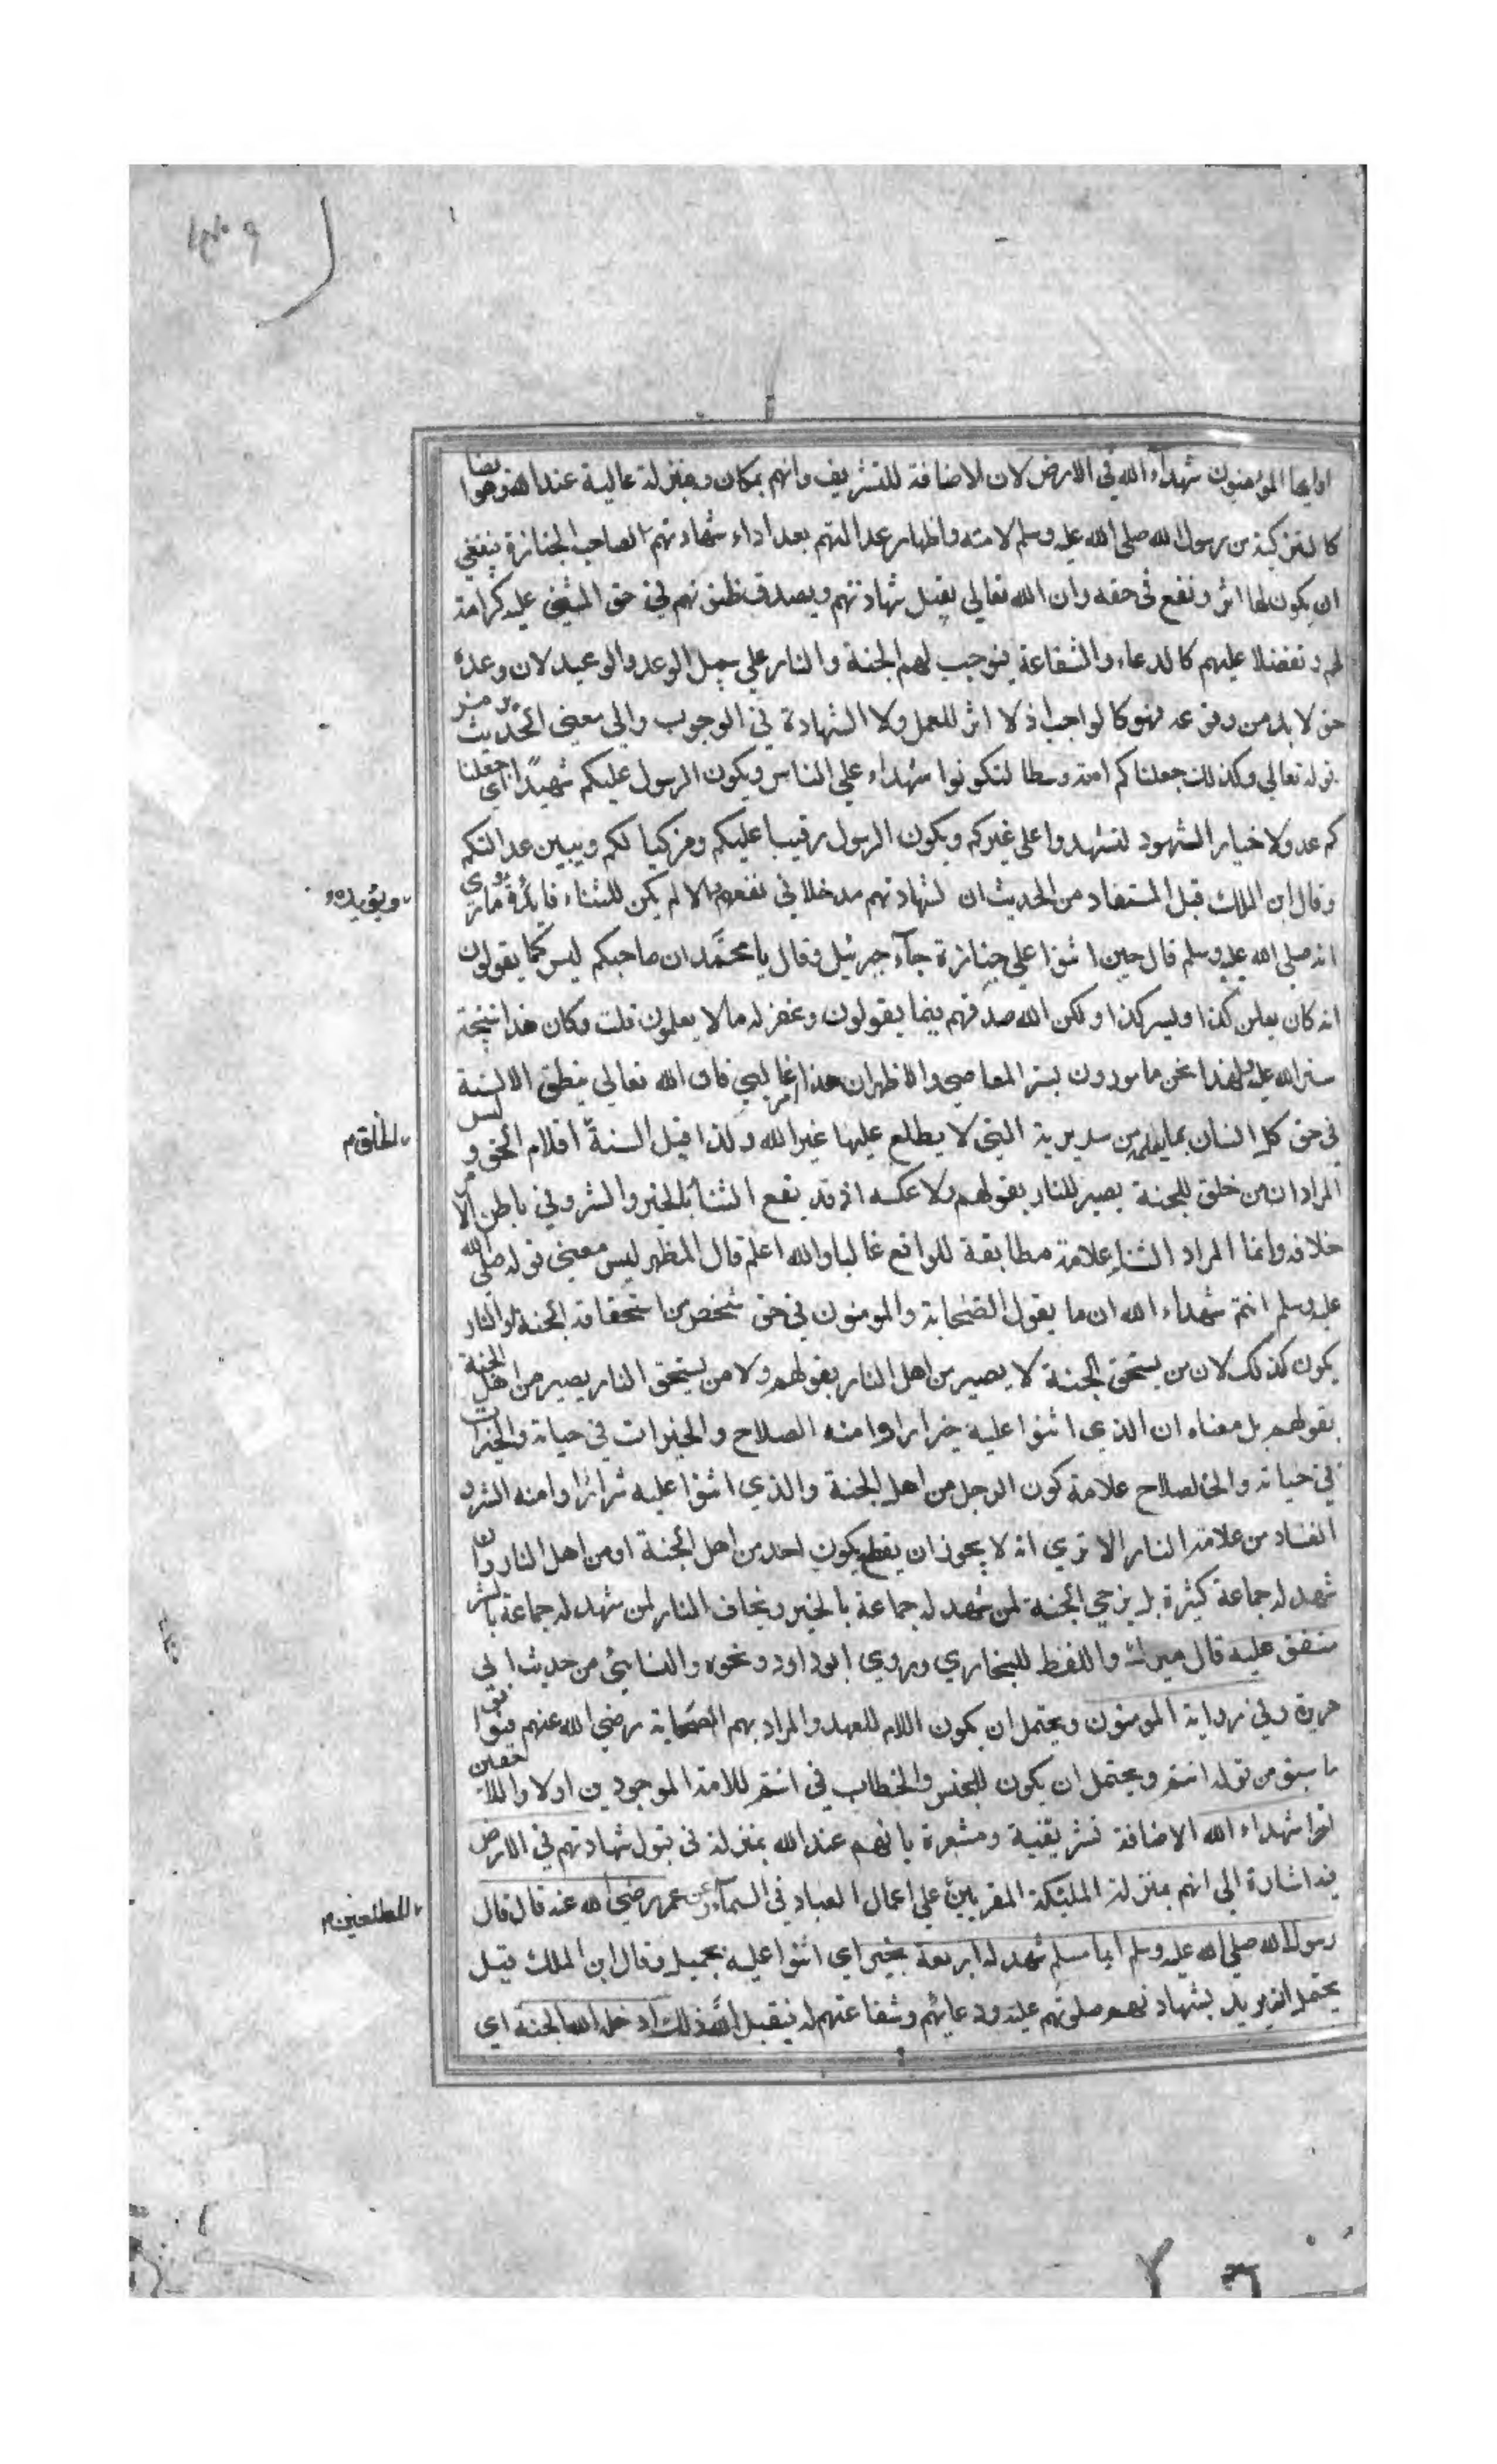 او ايها المؤمنون شهداء الله في الارض لان الاضافة للتشريف وانهم بمكان ومنزلة عالية عند الله وهو ايضا
كالتزكية من رسول الله صلى الله عليه وسلم لامته واظهار عدالتهم بعد اداء شهادتهم لصاحب الجنازة ينبغي
ان يكون لها اثر ونفع في حقه وان الله تعالي يقبل شهادتهم ويصدق ظنونهم في حق المثني عليه كرامة
لهم وتفضلا عليهم كالدعاء والشفاعة فيوجب لهم الجنة والنار علي سبيل الوعد والوعيد لان وعده
حق لا بد من وقوعه فهو كالواجب اذ لا اثر للعمل ولا الشهادة في الوجوب والي معني الحديث يرمز
قوله تعالي وكذلك جعلناكم امة وسطا لتكونوا شهداء علي الناس ويكون الرسول عليكم شهيدا اي جعلنا
كم عدولا خيار الشهود لتشهدوا علي غيركم ويكون الرسول رقيبا عليكم ومزكيا لكم ويبين عدالتكم
وقال ابن الملك قيل المستفاد من الحديث ان لشهادتهم مدخلا في نفعهم والا لم يكن للثناء فايدة ما روي
ويؤيده
انه صلي الله عليه وسلم قال حين اثنوا علي جنازة جآء جبرئيل وقال يا محمد ان صاحبكم ليس كما يقولون
انه كان يعلن كذا ويسر كذا ولكن الله صدقهم فيما يقولون وغفر له ما لا يعلمون قلت وكان هذا نتيجة
ستر الله عليه ولهذا نحن مامورون بستر المعاصي والاظهر ان هذا امر غالبي فان الله تعالي ينطق الالسنة
في حق كل انسان بما يعلمه من سريرته التي لا يطلع عليها غير الله ولذا قيل السنة اقلام الحق و ليس
الخلق
المراد ان من خلق للجنة يصير للنار بقولهم ولا عكسه اذ قد يقع الثناء بالخير والشر وفي باطن الامر
خلافه وانما المراد الثناء علامة مطابقة للواقع غالبا والله اعلم قال المظهر ليس معني قوله صلي الله
عليه وسلم انتم شهداء الله ان ما يقول الصحابة والمومنون في حق شخص من استحقاقه الجنة او النار
يكون كذلك لان من يستحق الجنة لا يصير من اهل النار بقولهم ولا من يستحق النار يصير من اهل الجنة
بقولهم بل معناه ان الذي اثنوا عليه خيرا راوا منه الصلاح والخيرات في حياته والخيرات
في حياته والصلاح علامة كون الرجل من اهل الجنة والذي اثنوا عليه شرا راوا منه الشر و
الفساد من علامة النار الا تري انه لا يجوز ان يقطع بكون احد من اهل الجنة او من اهل النار وان
شهد له جماعة كثيرة بل يرجي الجنة لمن شهد له جماعة بالخير ويخاف النار لمن شهد له جماعة بالشر
متفق عليه قال ميرك واللفظ للبخاري وروي ابو داود ونحوه والنسائي من حديث ابي
هريرة وفي رواية المومنون ويحتمل ان يكون اللام للعهد والمراد بهم الصحابة رضي الله عنهم فيوافق
ما سبق من قوله انتم ويحتمل ان يكون للجنس والخطاب في انتم للامة الموجودين اولا واللاحقين
اخرا شهداء الله الاضافة تشريفية ومشعرة بانهم عند الله بمنزلة في قبول شهادتهم في الارض
فيه اشارة الي انهم بمنزلة الملئكة المقربين علي اعمال العباد في السمآء وعن عمر رضي الله عنه قال قال
المطلعين
رسول الله صلي الله عليه وسلم ايما مسلم شهد له اربعة بخير اي اثنوا عليه بجميل وقال ابن الملك قيل
يحتمل ان يريد بشهادتهم صلوتهم عليه ودعائهم وشفاعتهم له فيقبل الله ذلك ادخله الله الجنة اي